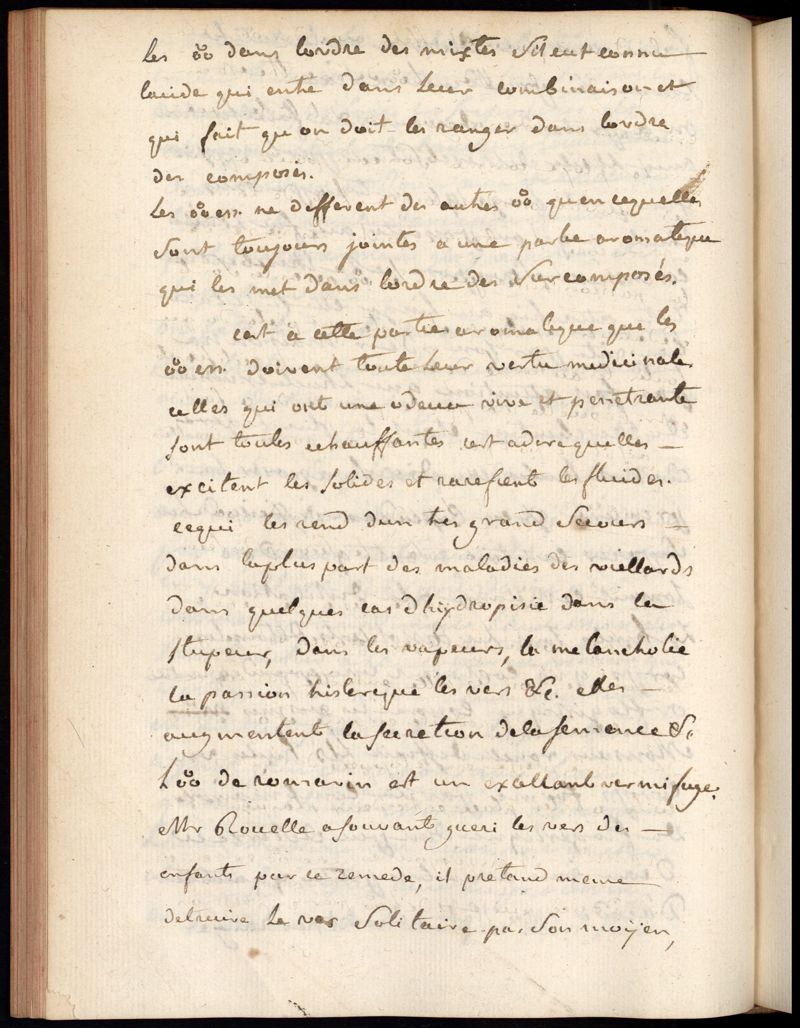 Les o°o dans lordre des mixtes Sil eut connu
lacide qui entre dans Leur combinaison et
qui fait qu on doit les ranger dans lordre
des composés.
Les o°o ess. ne different des autres o°o quen cequelles
Sont toujours jointes a une partie aromatique
qui les met dans lordre des Surcomposés.
cest a cette partie aromatique que les
o°o ess. doivent toute Leur vertu medicinale
celles qui ont une odeur vive et penetrante
sont toutes echauffantes cest adire quelles —
excitent les solides et rarefient les fluides.
cequi les rend dun tres grand Secours —
dans laplus part des maladies des viellards
dans quelques cas dhijdropisie dans la
stupeur, dans les vapeurs, la melancholie
la passion histerique les vers &c. elles —
augmentent la secretion de la semence &c
Lo°o de romarin est un exallant vermifuge.
Mr Rouelle a souvant gueri les vers des —
enfants par ce remede, il pretand meme
detruire Le ver Solitaire par Son moÿen,